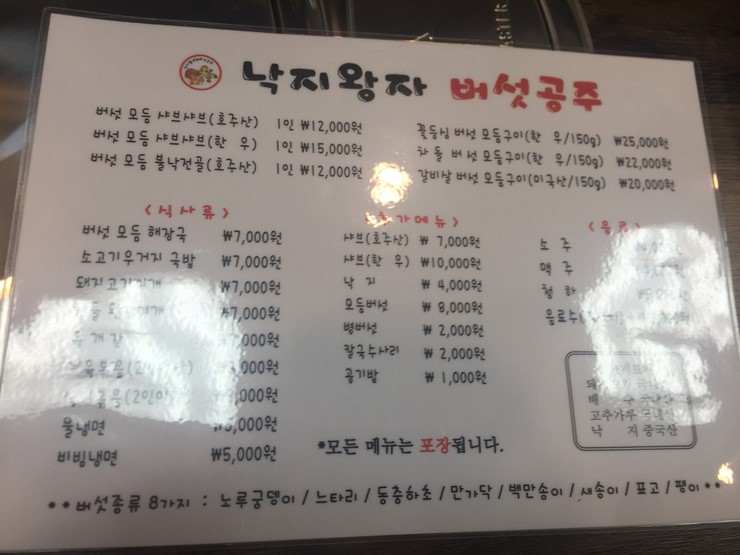 낙지왕자 버섯공주
버섯 모듬 샤브샤브(호주산) 1인 ₩12,000원
버섯 모듬 샤브샤브(한 우) 1인 ₩15,000원
버섯 모듬 불낙전골(호주산) 1인 ₩12,000원
꽃등심 버섯 모듬구이(한 우/150g) ₩25,000원
차 돌 버섯 모듬구이(한 우/150g) ₩22,000원
갈비살 버섯 모듬구이(미국산/150g) ₩20,000원
<식사류>
버섯 모듬 해장국 ₩7,000원
소고기우거지 국밥 ₩7,000원
돼지고기찌개 ₩7,000원
₩7,000원
7,000원
000원
물냉면 ₩5,000원
비빔냉면 ₩5,000원
가메뉴>
샤브(호주산) ₩ 7,000원
샤브(한 우) ₩10,000원
낙 지 ₩ 4,000원
모듬버섯 ₩ 8,000원
병버섯 ₩ 2,000원
칼국수사리 ₩ 2,000원
공기밥 ₩ 1,000원
<음료>
소 주
맥 주
청 하
음료수
고추가루 국내산
낙 지 중국산
*모든 메뉴는 포장됩니다.
**버섯종류 8가지 : 노루궁뎅이/느타리/동충하초/만가닥/백만송이/새송이/표고/팽이**